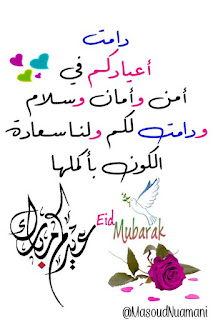 دامت
أعيادكم في
أمن وأمان وسلام
ودامت لكم ولنا سعادة
الكون بأكملها
Eid
Mubarak
عيدكم مبارك
@MasoudNuamani